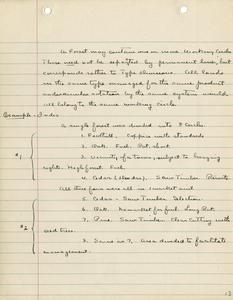 A Forest may contain one or more Working Circles
These need not be separated by permanent lines, but
corresponds rather to Type divisions. All lands
on the same type managed for the same product
under similar rotation by the same system would
all belong to the same working Circle.
Example - India
A single forest was divided into 8 Circles.
1. Foothill. Coppice with standards
2. Oak. Fuel. Rot. short
#1
3. Vicinity of a town, subject to hunting
rights. High forest. Fuel.
4. Cedar (Deodar). Saw Timber.
All these four were all in 1 market unit
5. Cedar - Saw Timber Selection.
6. Oak. No market for fuel. Long Rot.
#2
7. Pine. Saw Timber Clear Cutting with
seed trees.
8. Same as 7. Area divided to facilitate
management.
13